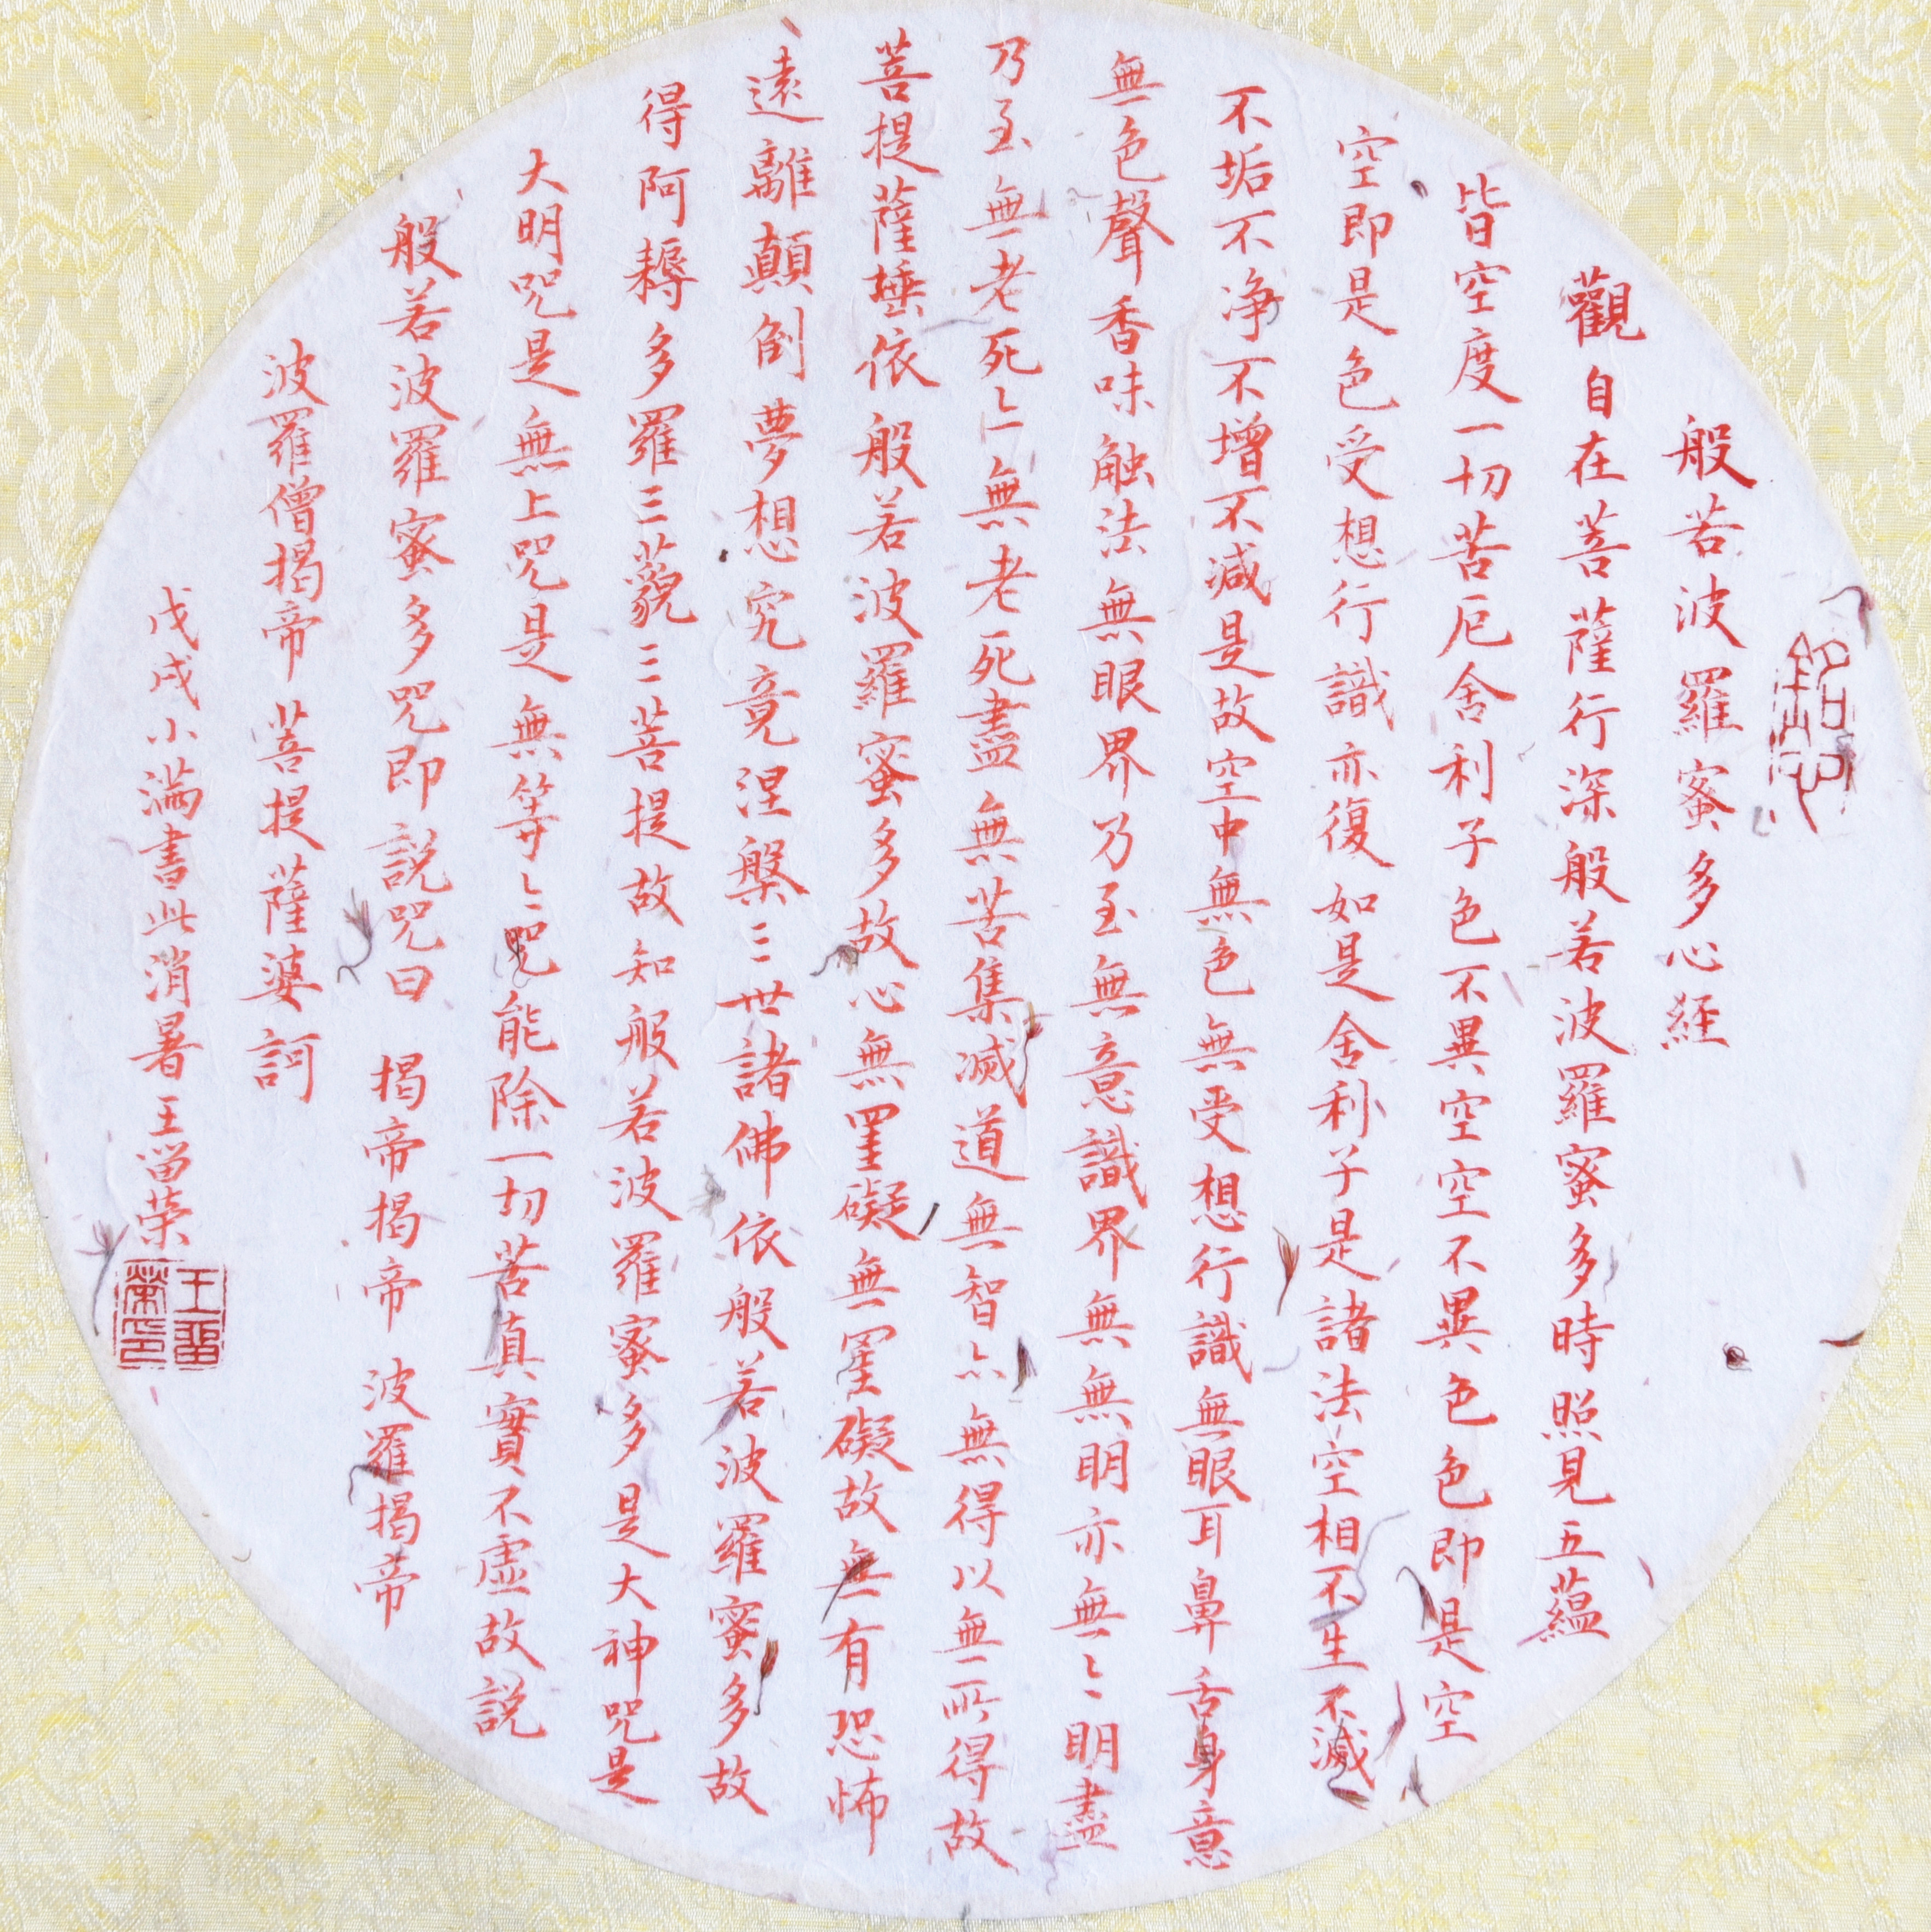 般若波羅蜜多心経
觀自在菩薩行深般若波羅蜜多時照見五蘊
皆空度一切苦厄舍利子色不異空空不異色色即是空
空即是色受想行識亦復如是舍利子是諸法空相不生不滅
不垢不净不增不減是故空中無色無受想行識無眼耳鼻舌身意
無色聲香味触法無眼界乃至無意識界無無明亦無〻明盡
乃至無老死亦無老死盡無苦集滅道無智亦無得以無所得故
菩提薩埵依般若波羅蜜多故心無罣礙無罣礙故無有恐怖
遠離顛倒夢想究竟涅槃三世諸佛依般若波羅蜜多故
得阿耨多羅三藐三菩提故知般若波羅蜜多是大神咒是
大明咒是無上咒是無等〻咒能除一切苦真實不虛故説
般若波羅蜜多咒即説咒曰 揭帝揭帝 波羅揭帝
波羅僧揭帝 菩提薩婆訶
戊戌小满書此消暑 王畄荣